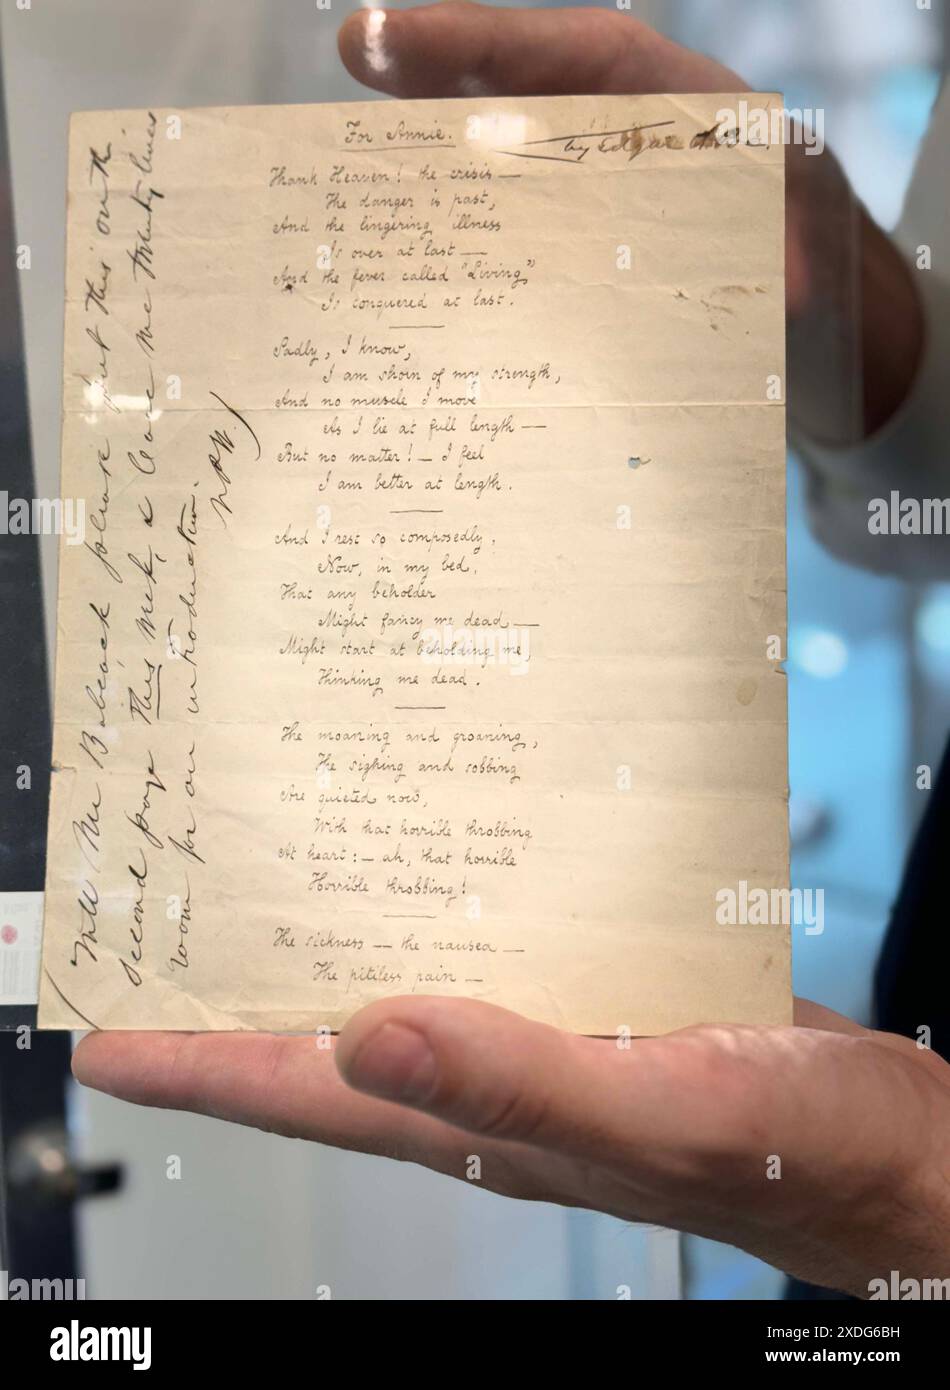 For Annie.
by Edgar A. Poe.
Thank Heaven! the crisis —
The danger is past,
And the lingering illness
Is over at last —
And the fever called "Living"
Is conquered at last.
Sadly, I know,
I am shorn of my strength,
And no muscle I move
As I lie at full length —
But no matter! — I feel
I am better at length.
And I rest so composedly,
Now, in my bed,
That any beholder
Might fancy me dead —
Might start at beholding me,
Thinking me dead.
The moaning and groaning,
The sighing and sobbing
Are quieted now,
With that horrible throbbing
At heart: — ah, that horrible
Horrible throbbing!
The sickness — the nausea —
The pitiless pain —
(Will Mr Babcock please put this on the
second page this week, & leave me twenty lines
room for an introduction.
N.P.W.)
alamy
Image ID: 2XDG6BH
www.alamy.com